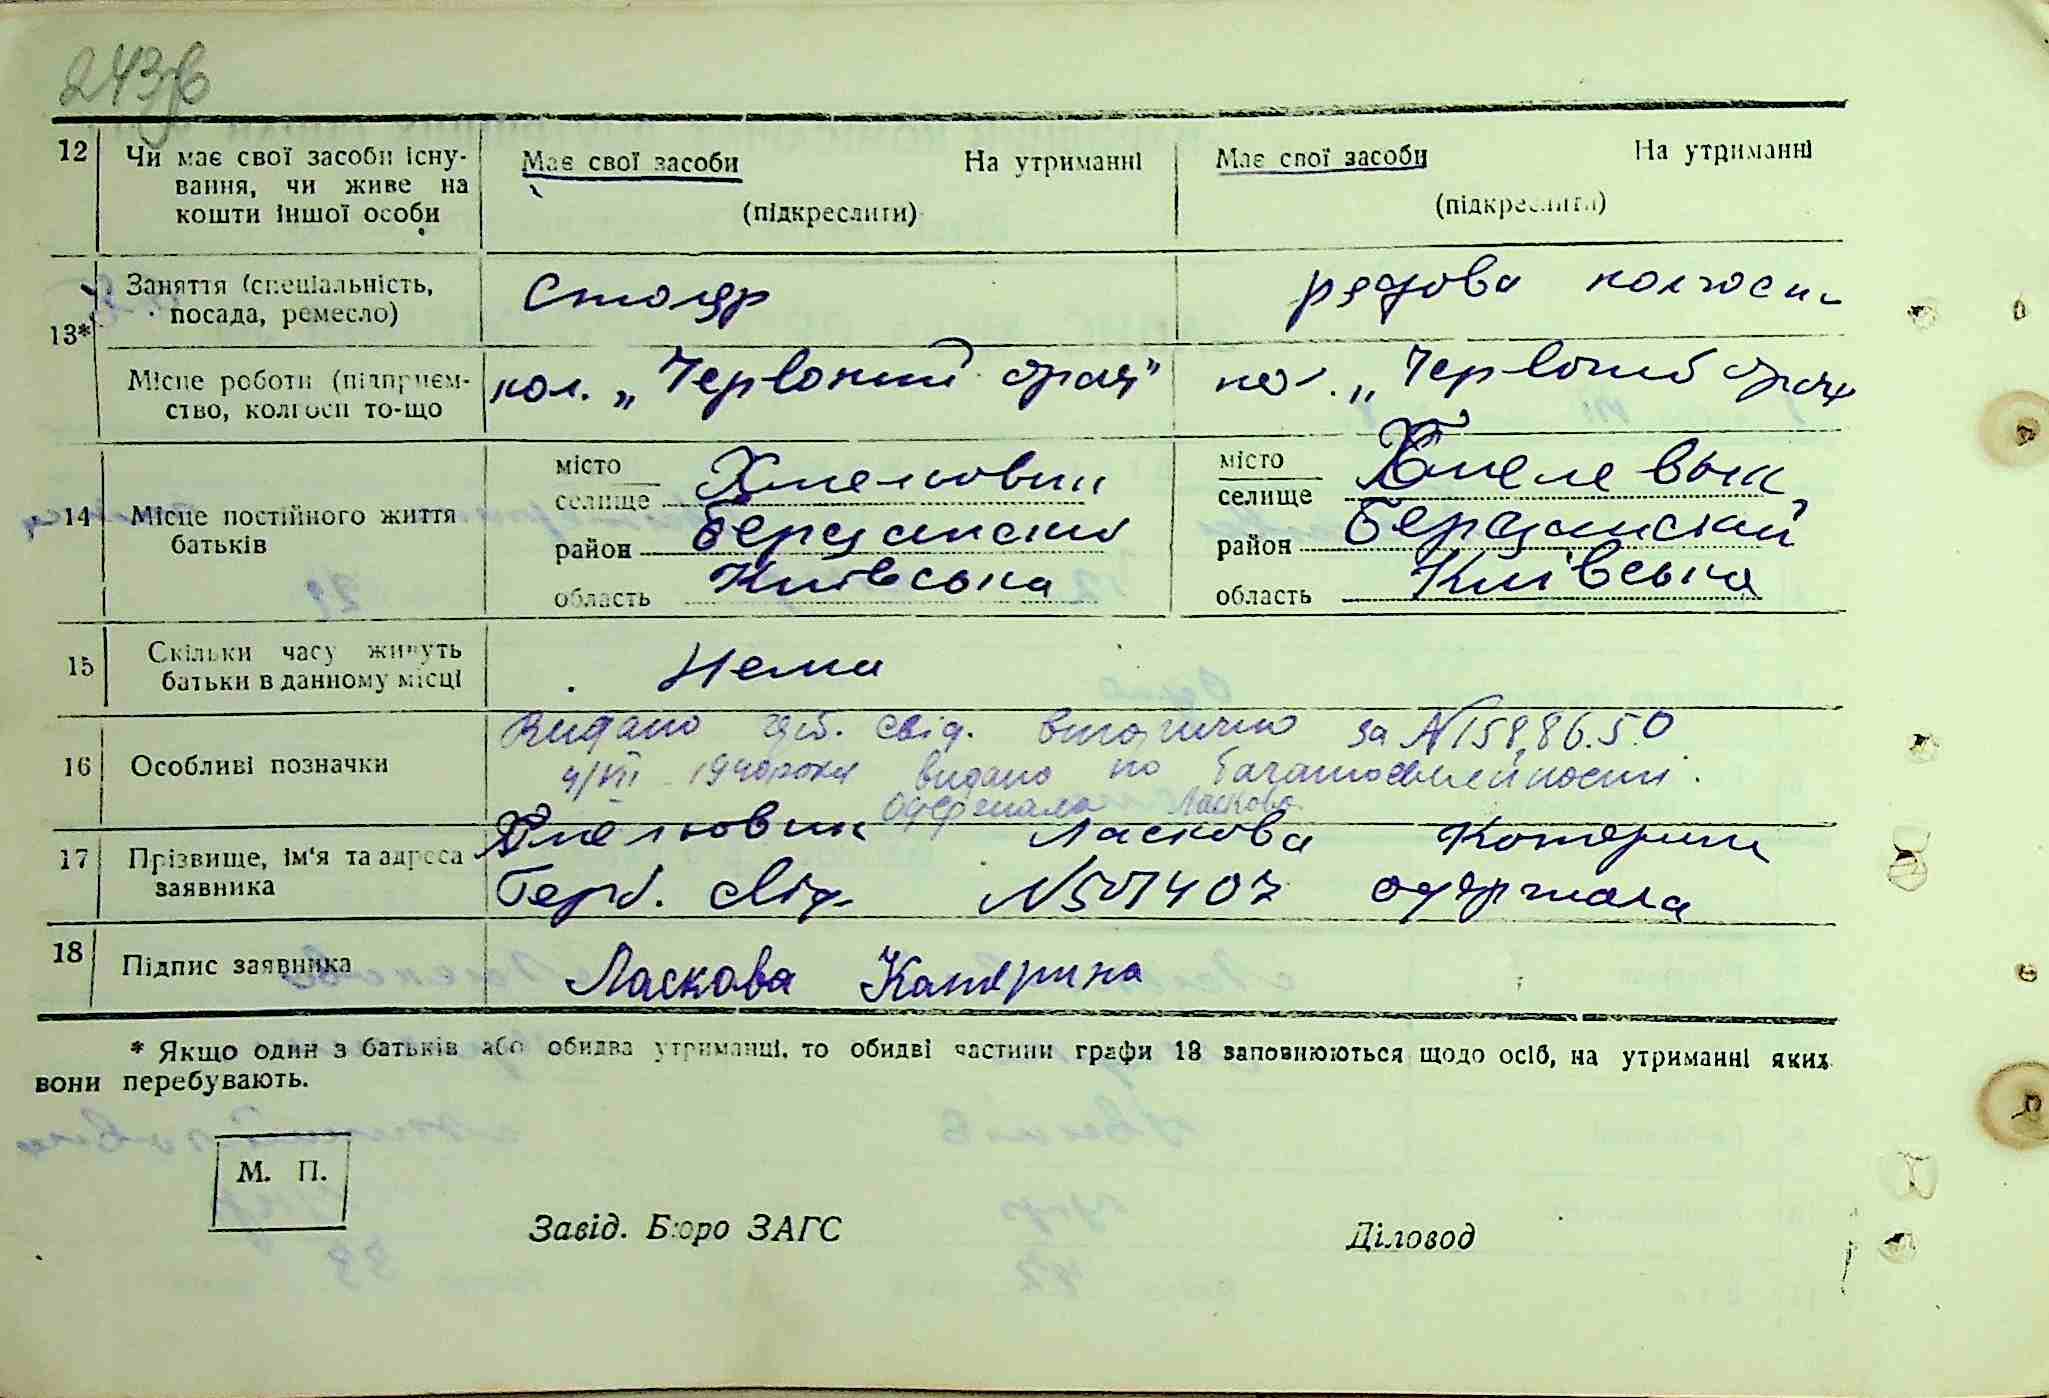 243в
12 Чи має свої засоби існу- Має свої засоби На утриманні Має свої засоби На утриманні
вання, чи живе на
кошти іншої особи (підкреслити) (підкреслити)
Заняття (спеціальність, столяр рядова колгосп
посада, ремесло)
13*
Місце роботи (підприєм- кол. „Червоний орач" кол. „Червоний орач
ство, колгосп то-що
місто Хмельовик місто Хмелевык
селище селище
14 Місце постійного життя
батьків район район
область Київська область Київська
15 Скільки часу живуть Нема
батьки в данному місці
Видано свід. вторично за №158,86.50
16 Особливі позначки 4/VII 1940 роки видано по багатосемейности.
Ласкова
17 Прізвище, ім'я та адреса Хмельовик Ласкова Катерина
заявника Герб. свід. №501407 одержала
18 Підпис заявника Ласкова Катерина
* Якщо один з батьків або обидва утриманці, то обидві частини графи 13 заповнюються щодо осіб, на утриманні яких
вони перебувають.
М. П.
Завід. Бюро ЗАГС Діловод